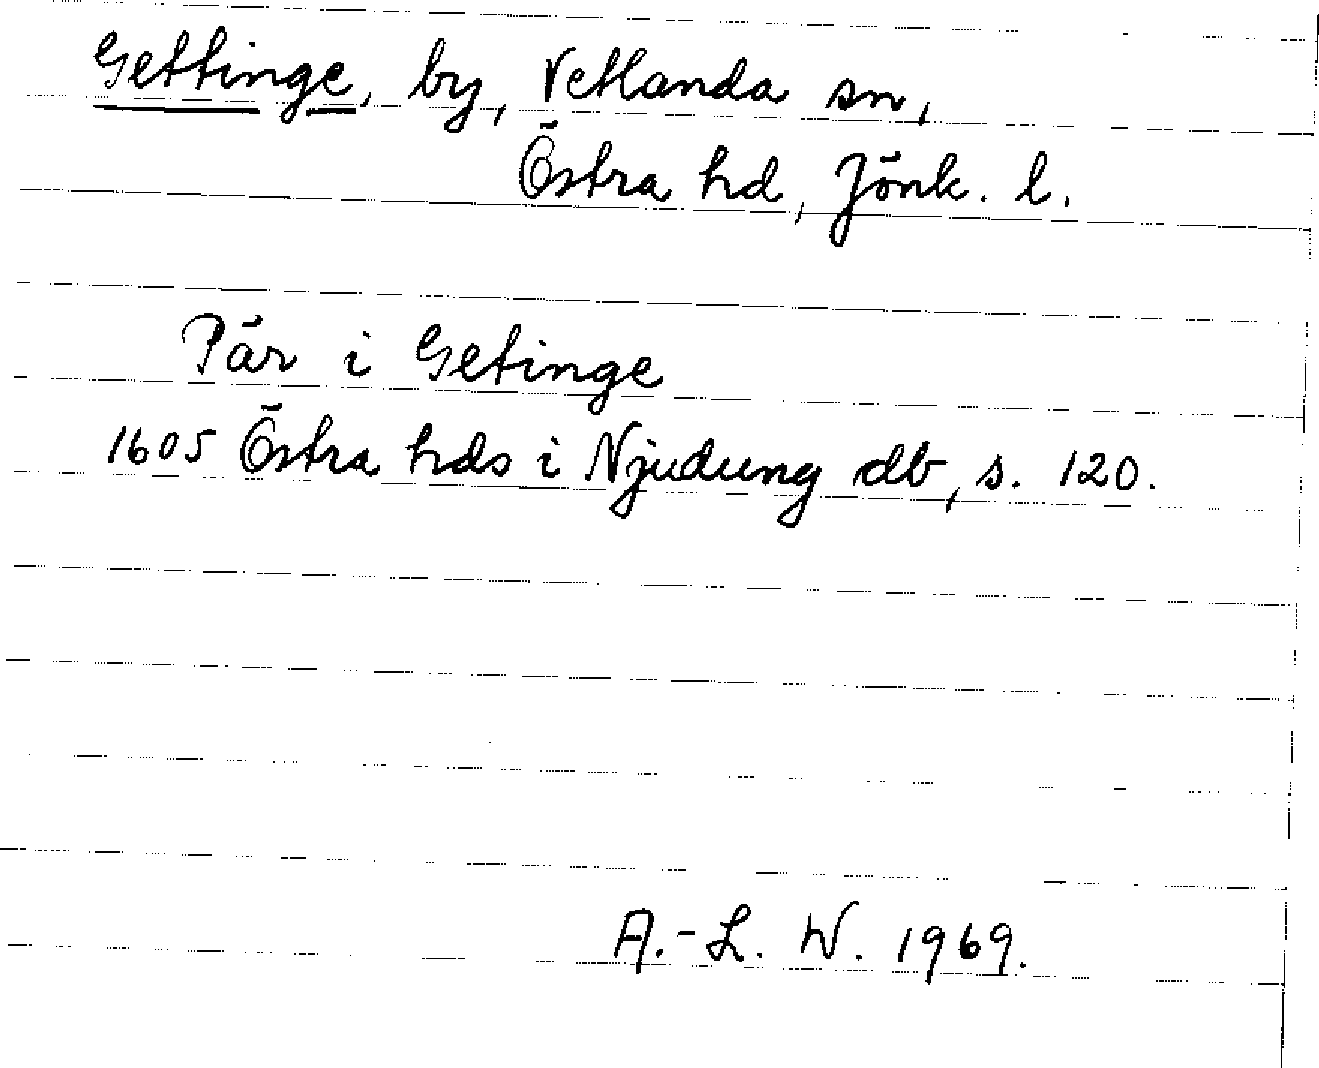 Gettinge, by, Vetlanda sn,
Östra hd, Jönk. l.
Pär i Getinge
1605 Östra hds i Njudung db, s. 120.
A.-L. W. 1969.